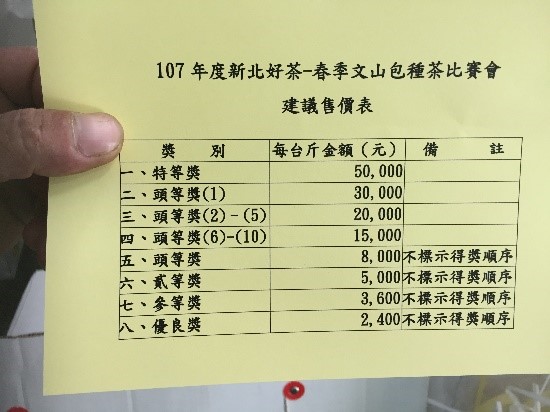 107 年度新北好茶-春季文山包種茶比賽會
建議售價表
獎 別 每台斤金額(元) 備 註
一、特等獎 50,000
二、頭等獎(1) 30,000
三、頭等獎(2)-(5) 20,000
四、頭等獎(6)-(10) 15,000
五、頭等獎 8,000 不標示得獎順序
六、貳等獎 5,000 不標示得獎順序
七、參等獎 3,600 不標示得獎順序
八、優良獎 2,400 不標示得獎順序